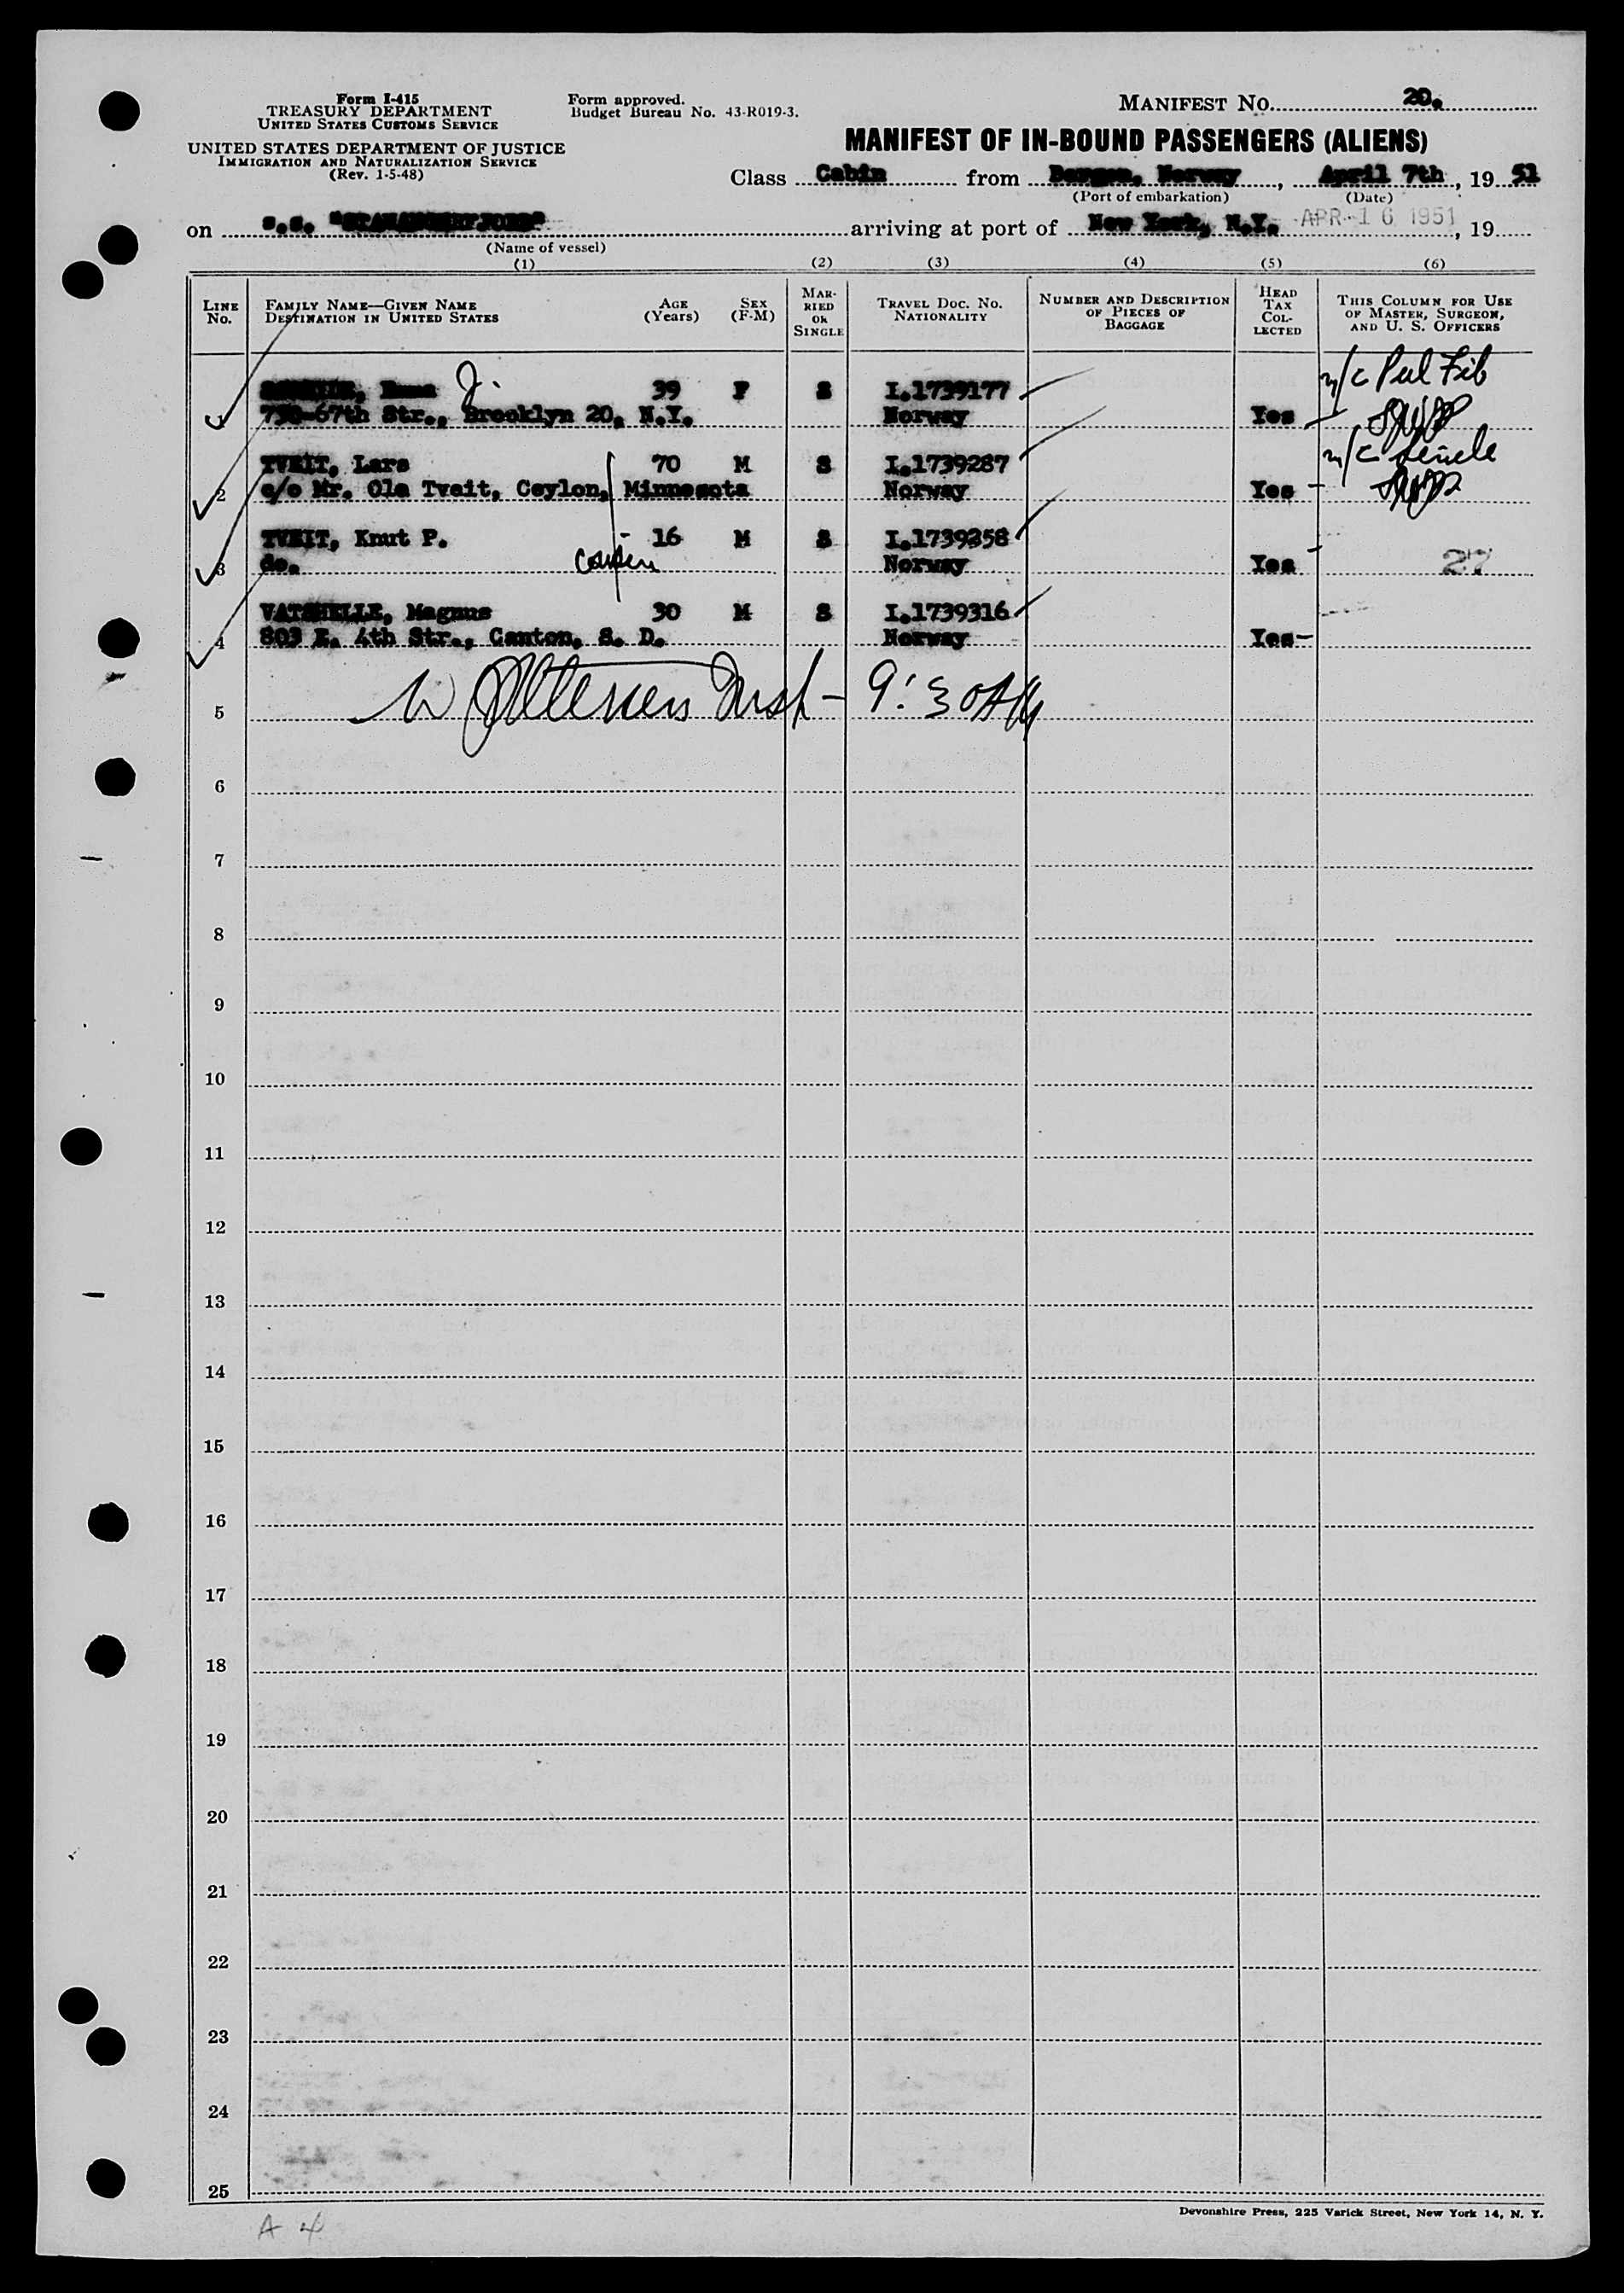 Form I-415
TREASURY DEPARTMENT
UNITED STATES CUSTOMS SERVICE
UNITED STATES DEPARTMENT OF JUSTICE
IMMIGRATION AND NATURALIZATION SERVICE
(Rev. 1-5-48)
Form approved.
Budget Bureau No. 43-R019-3.
MANIFEST NO. 20.
MANIFEST OF IN-BOUND PASSENGERS (ALIENS)
Class Cabin from Bergen, Norway, April 7th, 19 51
(Port of embarkation) (Date)
on s.s. "STAVANGERFJORD" arriving at port of New York, N.Y. APR 16 1951, 19
(Name of vessel)
(1) (2) (3) (4) (5) (6)
LINE NO. FAMILY NAME—GIVEN NAME DESTINATION IN UNITED STATES AGE (Years) SEX (F-M) MARRIED OR SINGLE TRAVEL DOC. NO. NATIONALITY NUMBER AND DESCRIPTION OF PIECES OF BAGGAGE HEAD TAX COLLECTED THIS COLUMN FOR USE OF MASTER, SURGEON, AND U. S. OFFICERS
J. 39 F S I.1739177 m/c Pul Fib
1 730-67th Str., Brooklyn 20, N.Y. Norway Yes
TVEIT, Lars 70 M S I.1739287 m/c Senile
2 c/o Mr. Ola Tveit, Ceylon, Minnesota Norway Yes
TVEIT, Knut P. 16 M S I.1739258
3 do. cousin Norway Yes 27
VATSHELLE, Magnus 30 M S I.1739316
4 803 E. 4th Str., Canton, S. D. Norway Yes
5 Insp - 9:30 AM
6
7
8
9
10
11
12
13
14
15
16
17
18
19
20
21
22
23
24
25
Devonshire Press, 225 Varick Street, New York 14, N. Y.
A 4